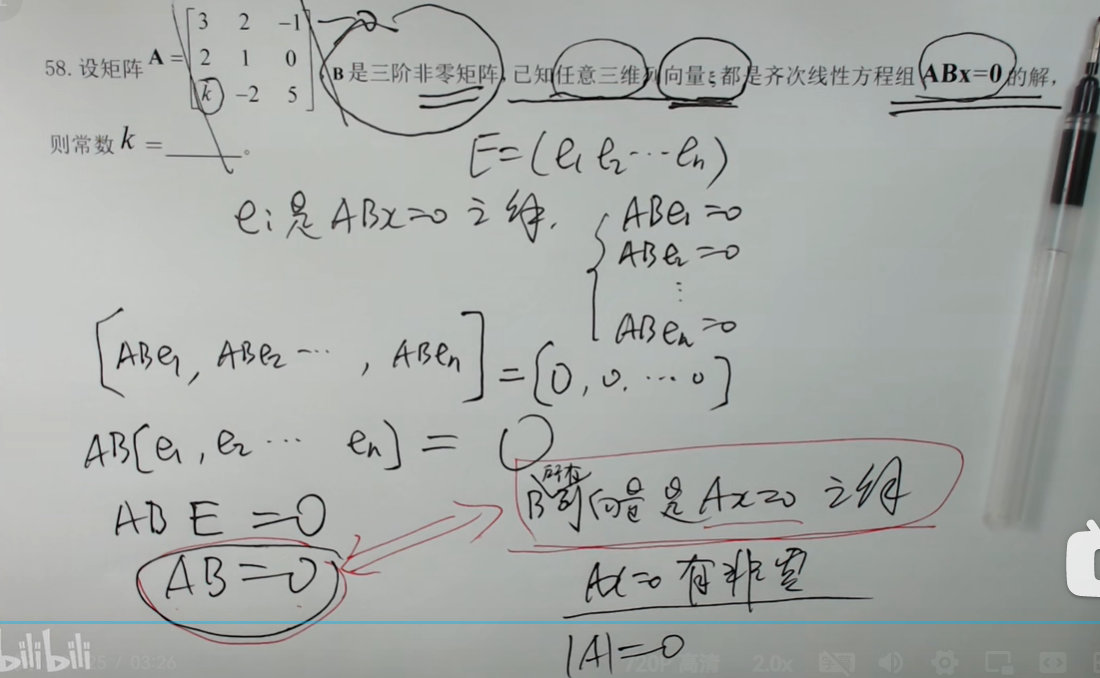 58. 设矩阵 A = [3 2 −1
2 1 0
k −2 5] , B 是三阶非零矩阵, 已知任意三维列向量ξ都是齐次线性方程组 ABx=0 的解,
→ 0
则常数 k = ______。
E=(e₁ e₂ ⋯ eₙ)
eᵢ是 ABx=0 之解.
ABe₁=0
ABe₂=0
⋮
ABeₙ=0
[ABe₁, ABe₂ ⋯ , ABeₙ] = [0, 0, ⋯ 0]
AB[e₁, e₂ ⋯ eₙ] = 0
所有
B列向量是 Ax=0 之解
ABE=0
AB=0
Ax=0 有非零
|A|=0
bilibili
/ 03:26
720P 高清
2.0x